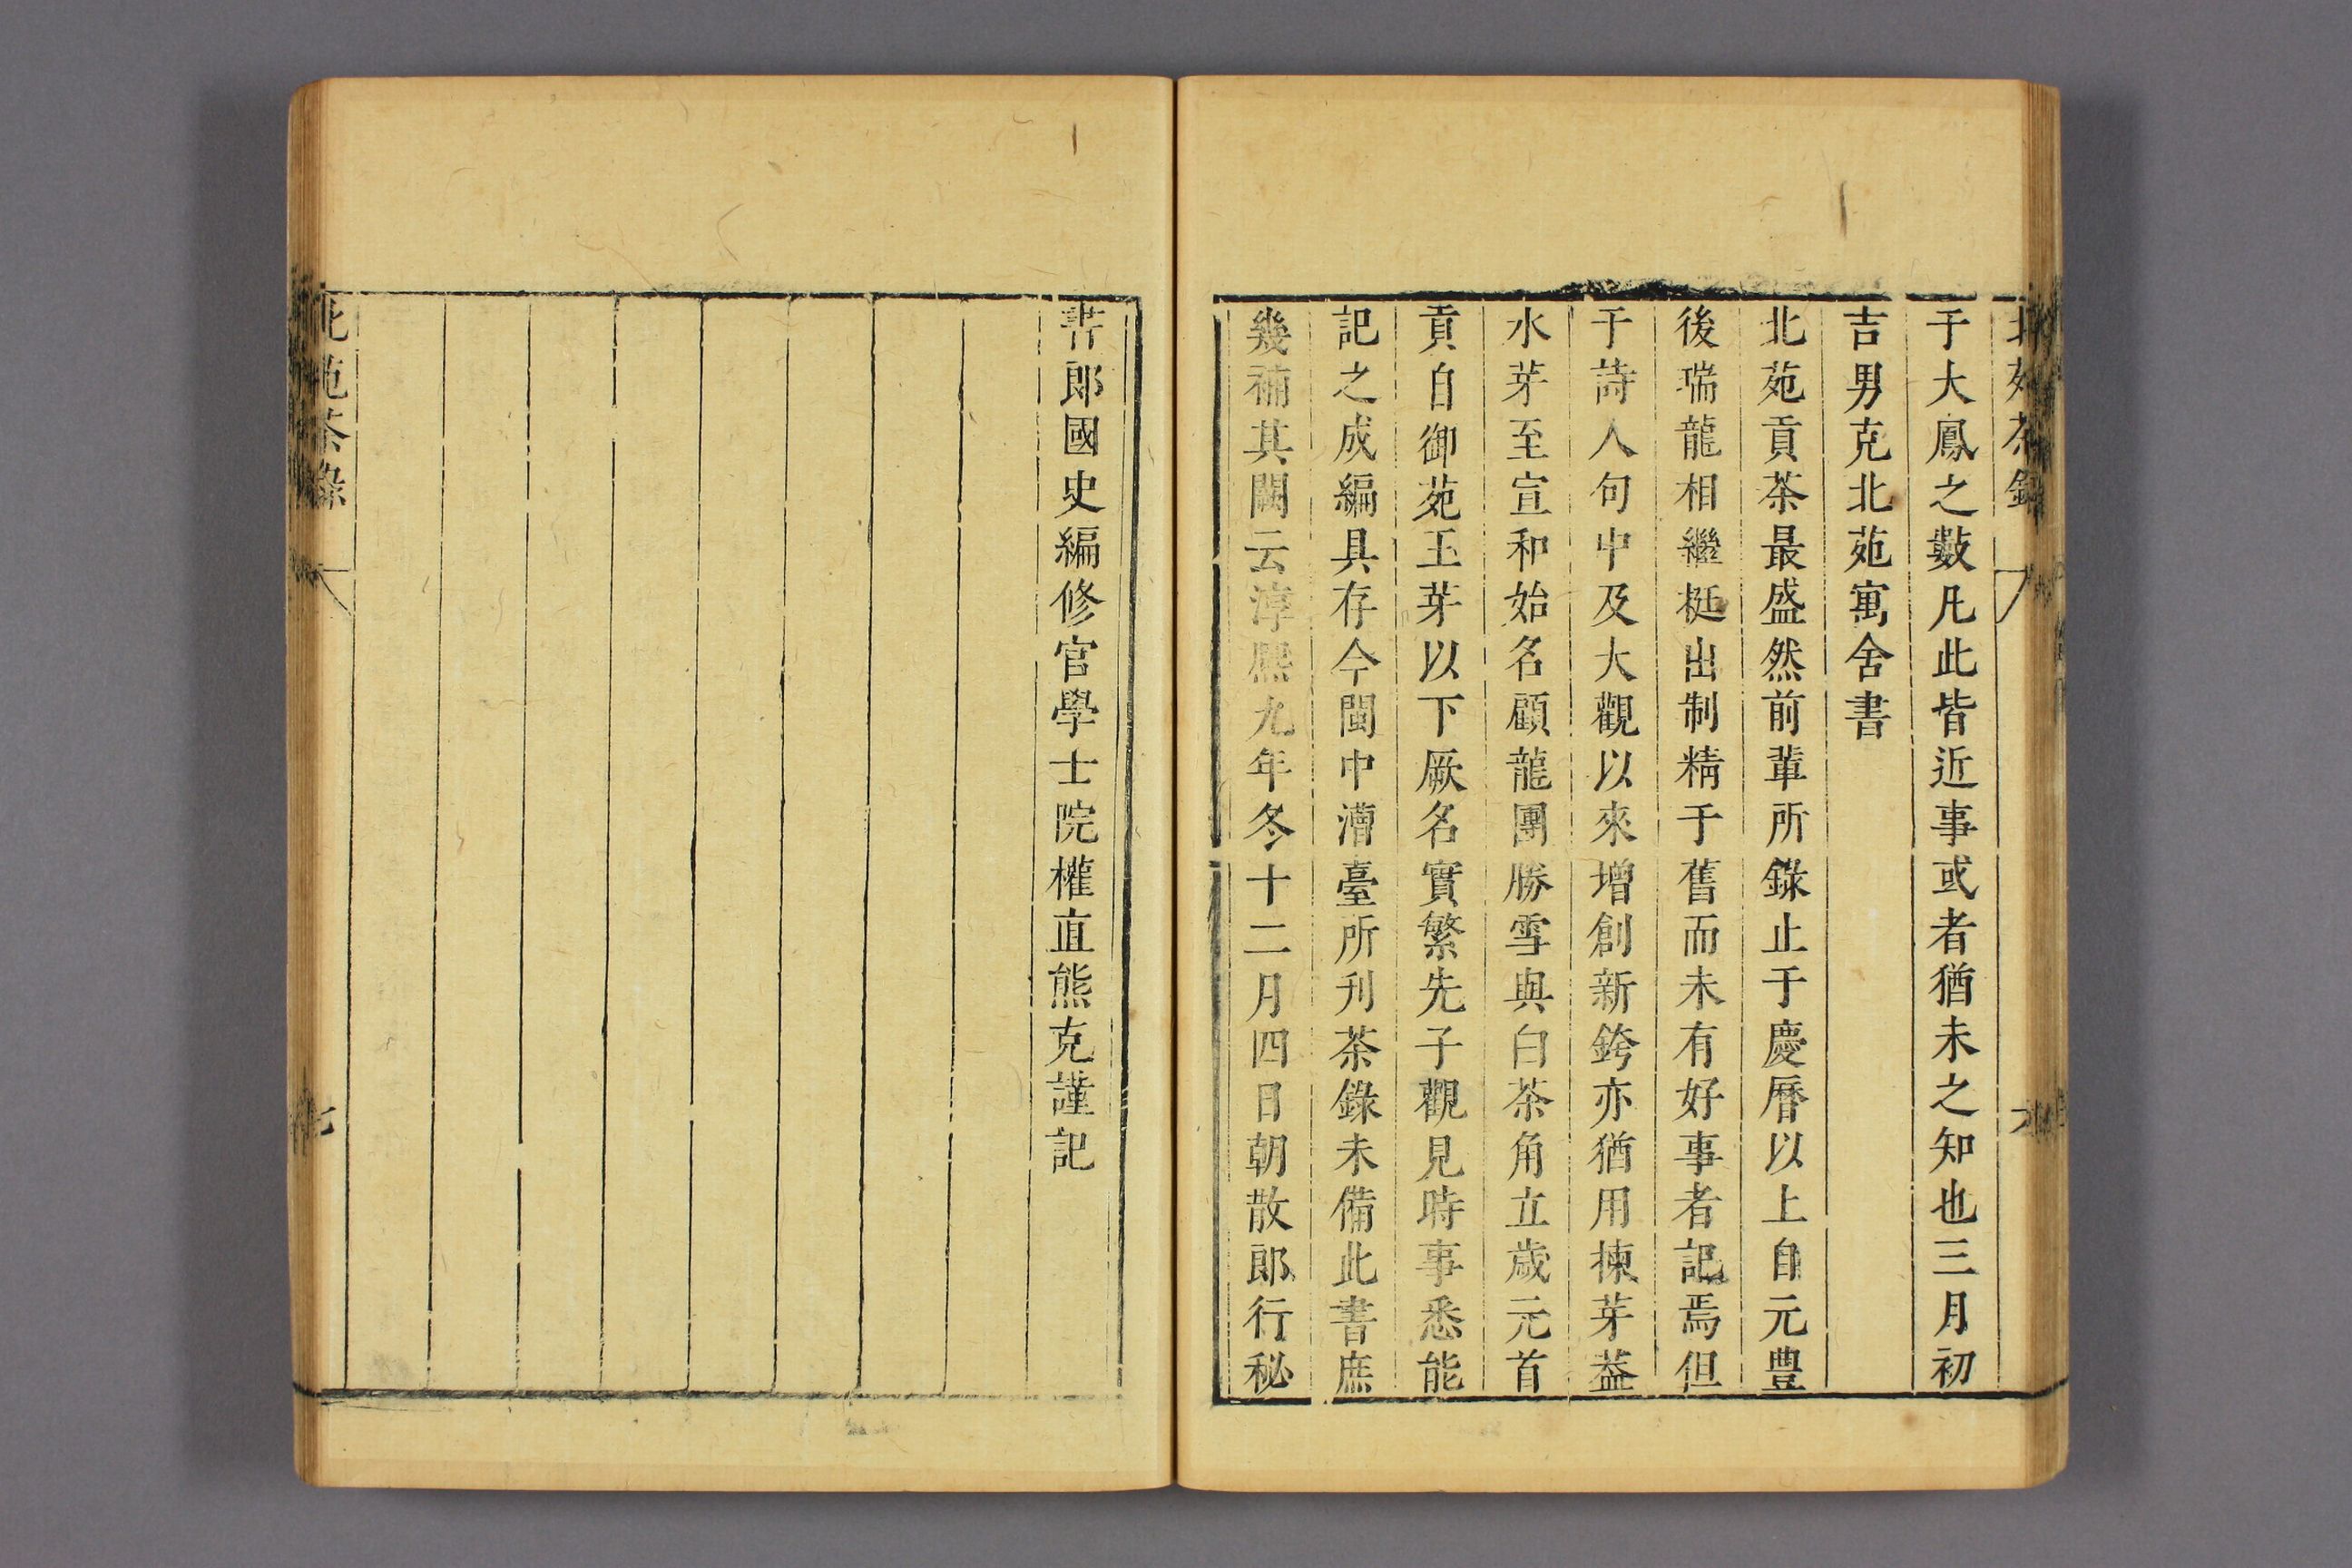 北苑茶錄
于大鳳之數凡此皆近事或者猶未之知也三月初
吉男克北苑寓舍書
北苑貢茶最盛然前輩所錄止于慶曆以上自元豊
後瑞龍相繼挺出制精于舊而未有好事者記焉但
于詩人句中及大觀以來增創新銙亦猶用揀芽葢
水芽至宣和始名顧龍團勝雪與白茶角立歲元首
貢自御苑玉芽以下厥名實繁先子觀見時事悉能
記之成編具存今閩中漕臺所刋茶錄未備此書庶
幾補其闕云淳熙九年冬十二月四日朝散郎行秘
書郎國史編修官學士院權直熊克謹記
北苑茶錄
七